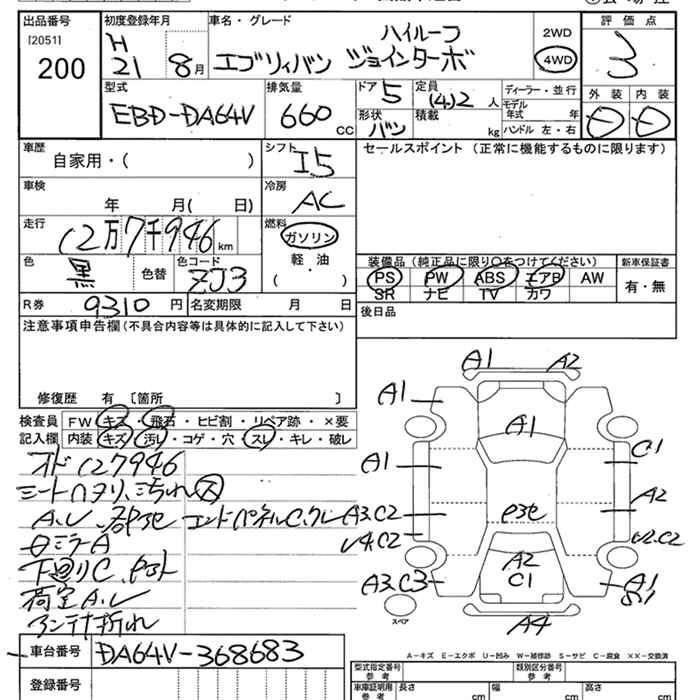 出品番号
[2051]
200
初度登録年月
H
21 8月
車名・グレード
ハイルーフ
エブリィバン ジョインターボ
2WD
4WD
評価点
3
型式
EBD-DA64V
排気量
660 CC
ドア 5
形状 バン
定員 (4)2 人
積載 kg
ディーラー・並行
モデル年式 年
ハンドル 左・右
外装 内装
車歴
自家用・( )
シフト I5
セールスポイント (正常に機能するものに限ります)
車検
年 月( 日)
冷房 AC
走行
12万7千946 km
燃料
ガソリン
軽・油
( )
色 黒 色替 色コード ZJ3
装備品(純正品に限り○をつけてください)
新車保証書
PS PW ABS エアB AW
SR ナビ TV カワ
有・無
R券 9310 円 名変期限 月 日
後日品
注意事項申告欄(不具合内容等は具体的に記入して下さい)
修復歴 有 〔箇所 〕
検査員 FW キズ・飛石・ヒビ割・リペア跡・×要
記入欄 内装 キズ・汚し・コゲ・穴・スレ・キレ・破レ
オド127946
シートヘタリ、汚れ大
A.U
エンドパネルC.クレ
ロミラーA
下廻りC
荷室A.U
アンテナ折れ
A1 A2
A1
A1
A1
C1
A2
A3.C2
U4.C2
U2.C2
A2
C1
A3.C3
A1
S1
A4
スペア
A-キズ E-エクボ U-凹み W-補修跡 S-サビ C-腐食 XX-交換済
車台番号 DA64V-368683
登録番号
型式指定番号 参考
類別区分番号 参考
車庫証明用 参考
長さ cm 幅 cm 高さ cm